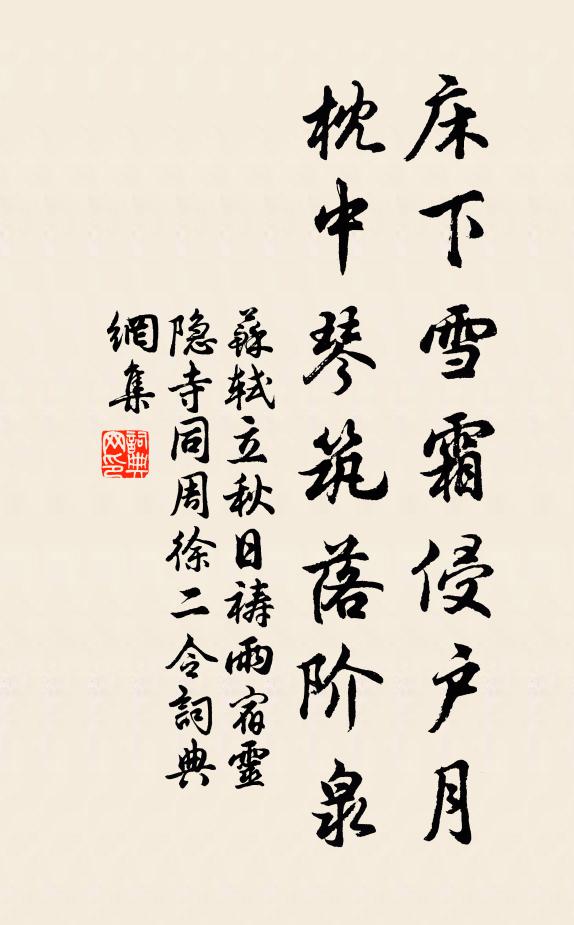 床下雪霜侵户月
枕中琴筑落阶泉
蘇轼立秋日祷雨宿靈
隐寺同周徐二令詞典
網集
詞典
网印